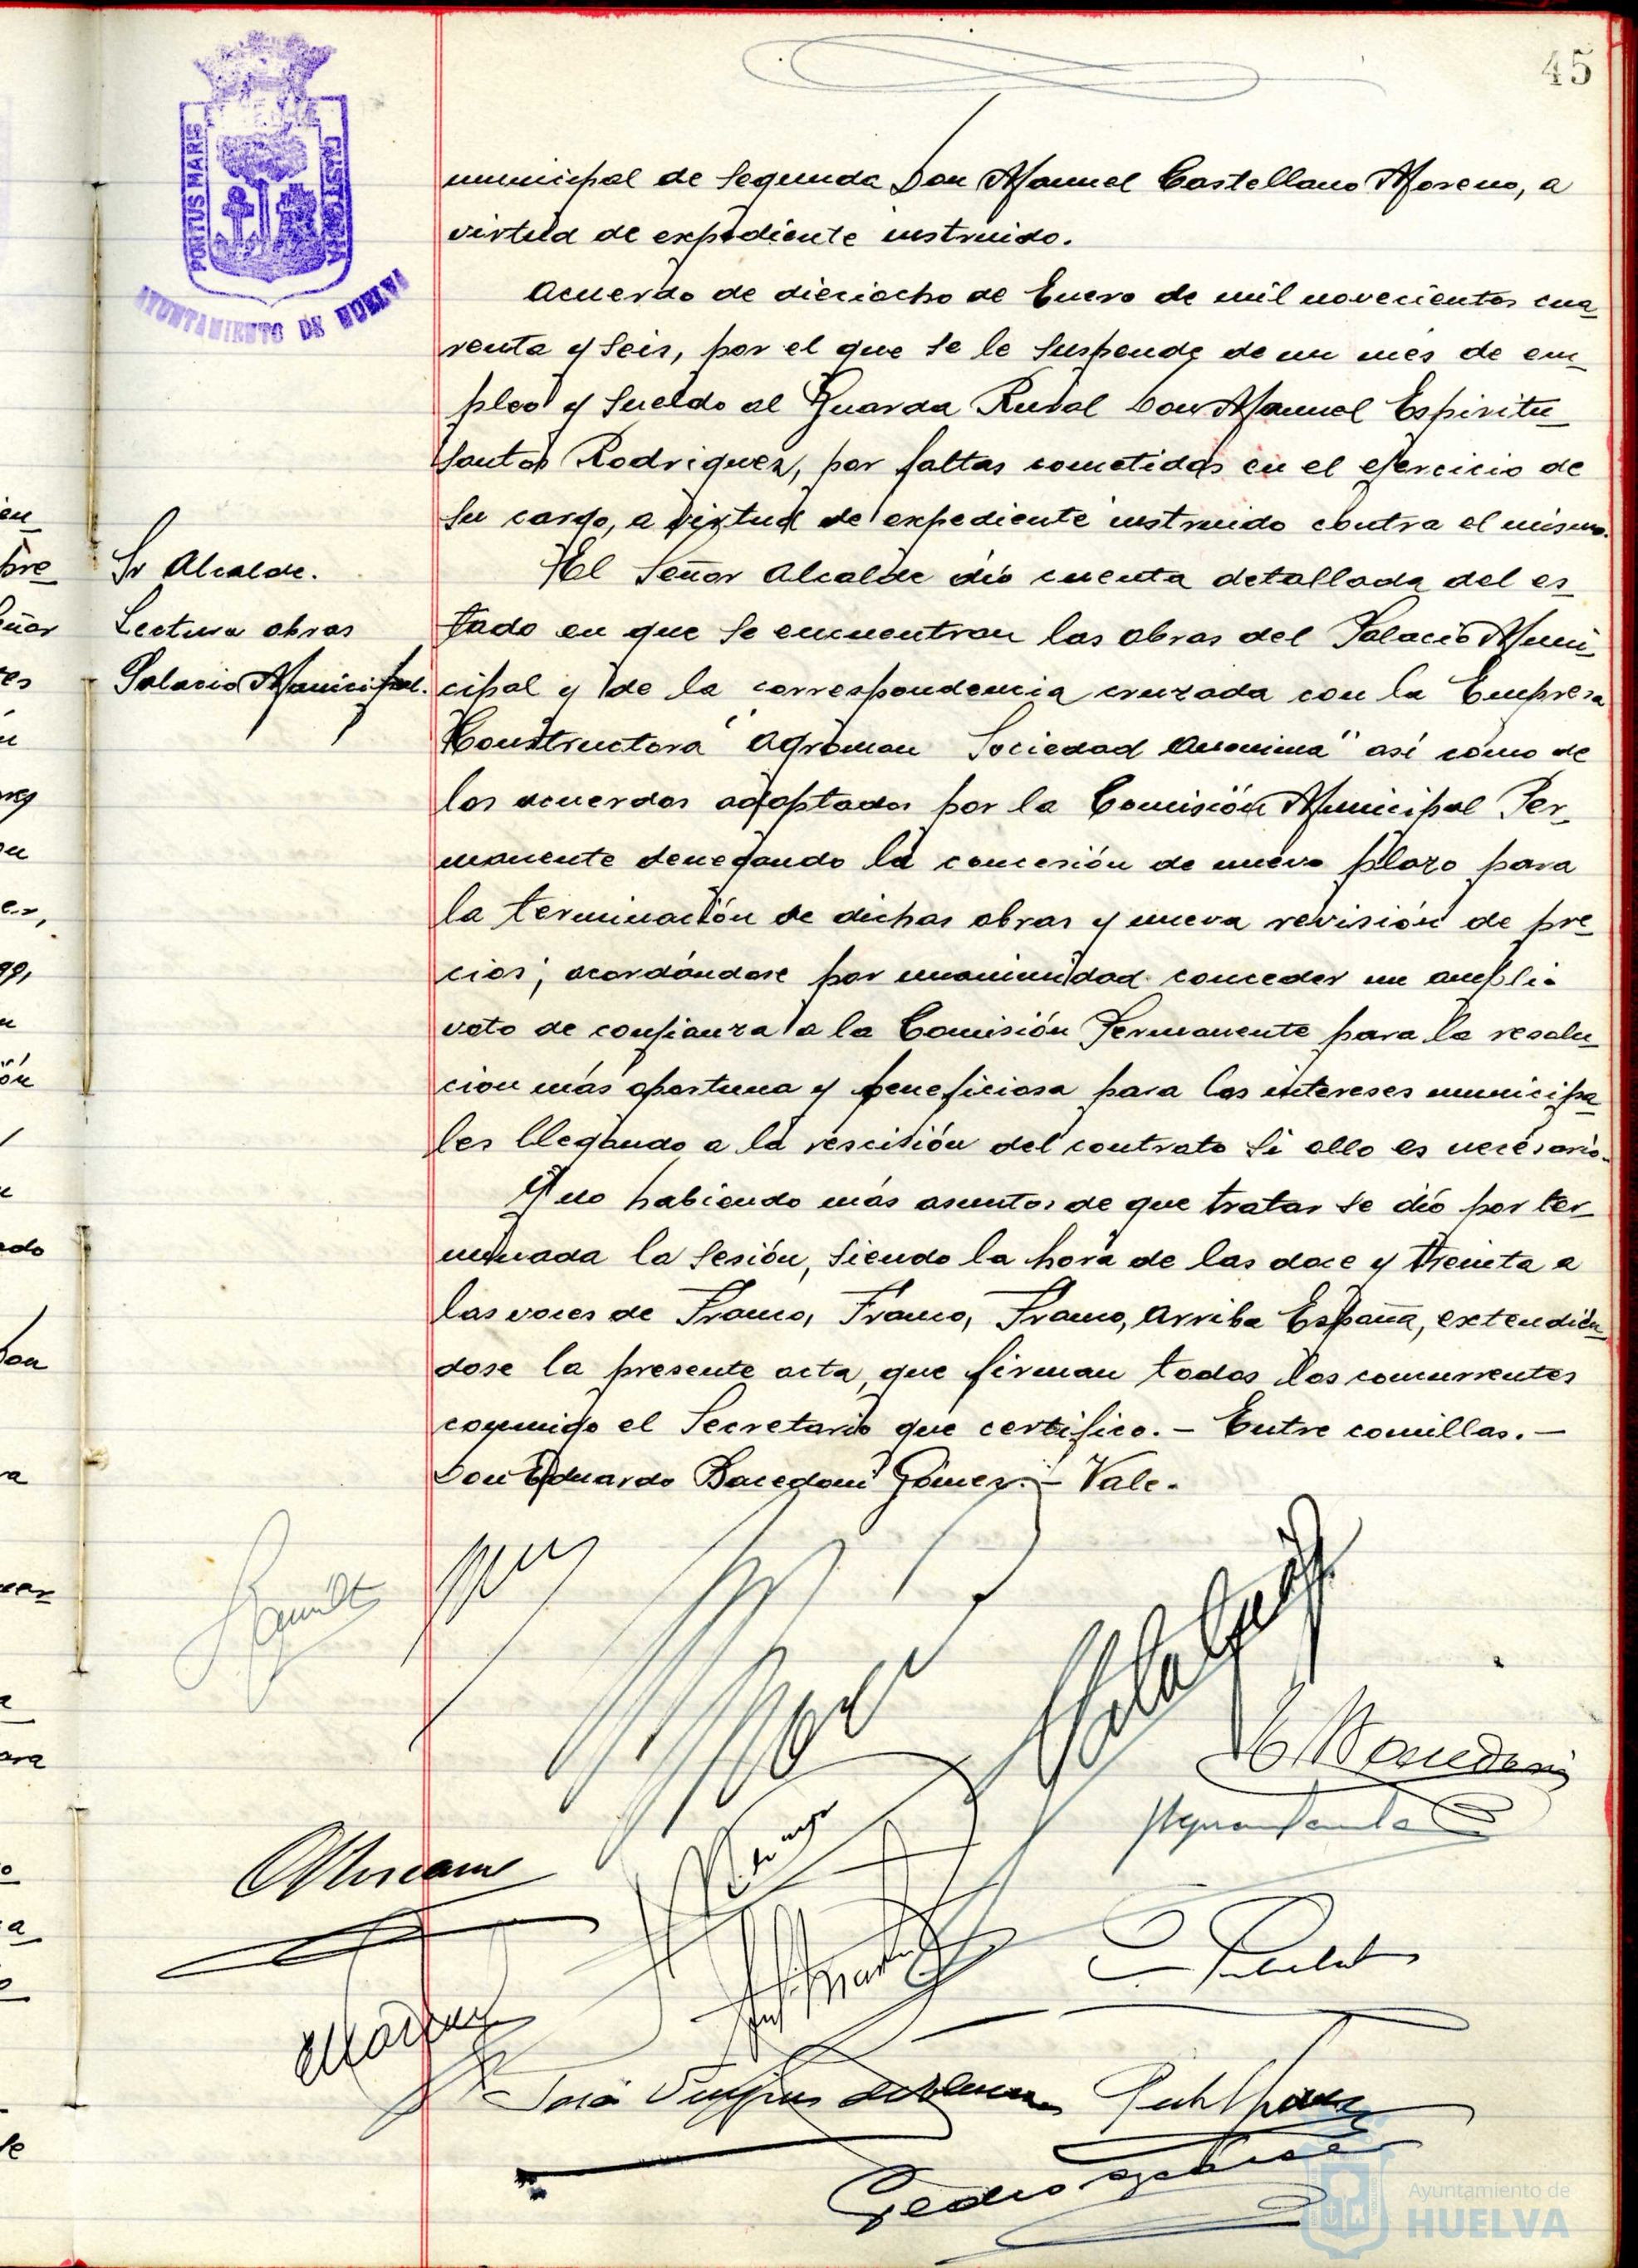 45
PORTUS MARIS
ET TERRAE CUSTODIA
AYUNTAMIENTO DE HUELVA
municipal de segunda Don Manuel Castellano Moreno, a
virtud de expediente instruido.
Acuerdo de dieciocho de Enero de mil novecientos cua
renta y seis, por el que se le suspende de un mes de em
pleo y sueldo al Guarda Rural Don Manuel Espiritu
Santos Rodriguez, por faltas cometidas en el ejercicio de
su cargo, a virtud de expediente instruido contra el mismo.
Sr Alcalde.
Lectura obras
Palacio Municipal.
El Señor Alcalde dió cuenta detallada del es
tado en que se encuentran las obras del Palacio Muni
cipal y de la correspondencia cruzada con la Empresa
Constructora "Agroman Sociedad Anonima" así como de
los acuerdos adoptados por la Comisión Municipal Per
manente denegando la concesión de nuevo plazo para
la terminación de dichas obras y nueva revisión de pre
cios; acordándose por unanimidad conceder un amplio
voto de confianza a la Comisión Permanente para la resolu
cion más oportuna y beneficiosa para los intereses municipa
les llegando a la rescisión del contrato si ello es necesario.
Y no habiendo más asuntos de que tratar se dió por ter
minada la sesión, siendo la hora de las doce y treinta a
las voces de Franco, Franco, Franco, Arriba España, extendién
dose la presente acta, que firman todos los concurrentes
conmigo el Secretario que certifico. - Entre comillas. -
Don Eduardo Bacedoni Gómez. - Vale.
Ayuntamiento de
HUELVA